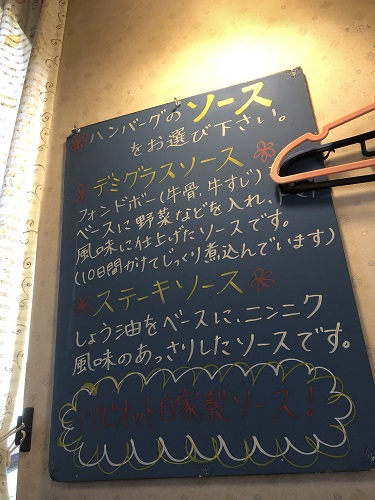 ハンバーグのソース
をお選び下さい。
デミグラスソース
フォンドボー(牛骨、牛すじ)
ベースに野菜などを入れ、
風味に仕上げたソースです。
(10日間かけてじっくり煮込んでいます)
ステーキソース
しょう油をベースに、ニンニク
風味のあっさりしたソースです。
自家製ソース!